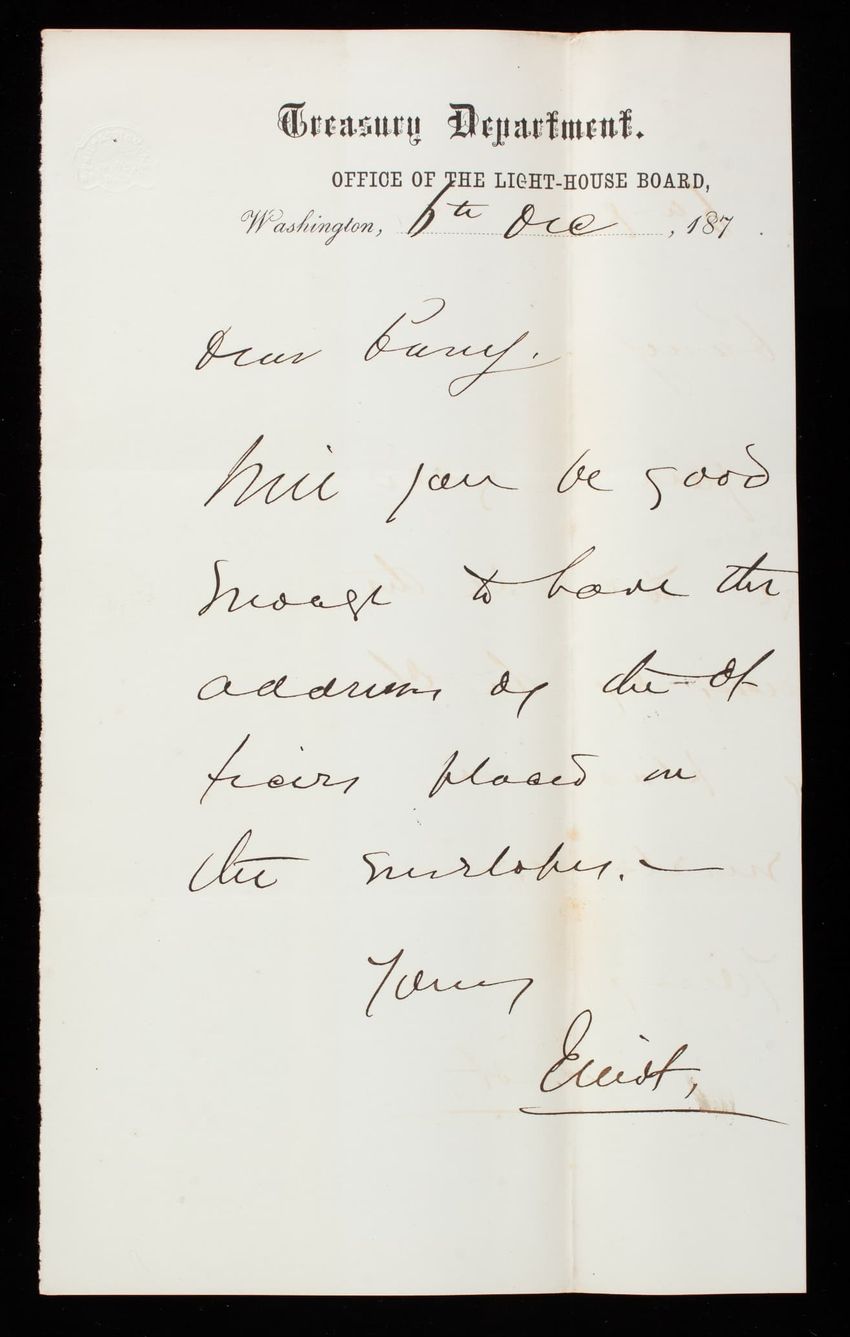 Treasury Department.
OFFICE OF THE LIGHT-HOUSE BOARD,
Washington, 6th Dec, 187 .
Dear Casey.
Will you be good
Enough to have the
address of the of
ficers placed on
the Envelopes. —
Yours
Elliot,